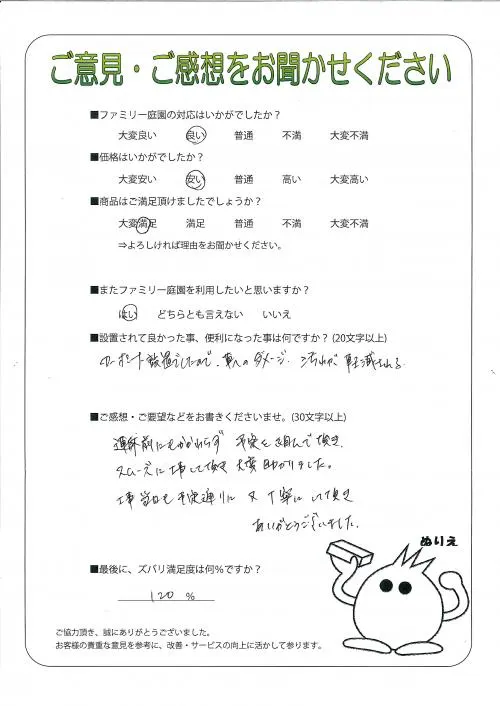 ご意見・ご感想をお聞かせください
■ファミリー庭園の対応はいかがでしたか？
大変良い 良い 普通 不満 大変不満
■価格はいかがでしたか？
大変安い 安い 普通 高い 大変高い
■商品はご満足頂けましたでしょうか？
大変満足 満足 普通 不満 大変不満
⇒よろしければ理由をお聞かせください。
■またファミリー庭園を利用したいと思いますか？
はい どちらとも言えない いいえ
■設置されて良かった事、便利になった事は何ですか？(20文字以上)
カーポート設置でしたので、車へのダメージ、汚れが軽減される
■ご感想・ご要望などをお書きくださいませ。(30文字以上)
連休前にもかかわらず 予定を組んで頂き、
スムーズに工事して頂き 大変助かりました。
工事当日も予定通りに 又 丁寧にして頂き
ありがとうございました。
ぬりえ
■最後に、ズバリ満足度は何％ですか？
120 %
ご協力頂き、誠にありがとうございました。
お客様の貴重な意見を参考に、改善・サービスの向上に活かして参ります。